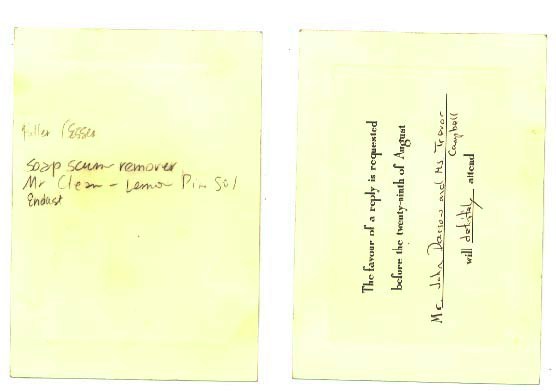 soap scum remover
Mr Clean - Lemon Pine Sol
Endust
The favour of a reply is requested
before the twenty-ninth of August
Mr. John Darrow and Ms Trevor
Campbell
will definitely attend